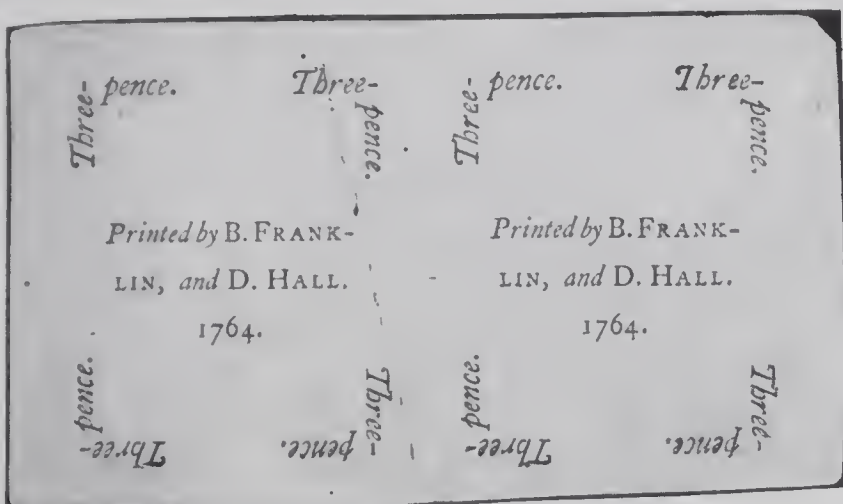 Three-
pence.
Three-
pence.
Printed by B. FRANK-
LIN, and D. HALL.
1764.
Three-
pence.
Three-
pence.
Three-
pence.
Three-
pence.
Printed by B. FRANK-
LIN, and D. HALL.
1764.
Three-
pence.
Three-
pence.